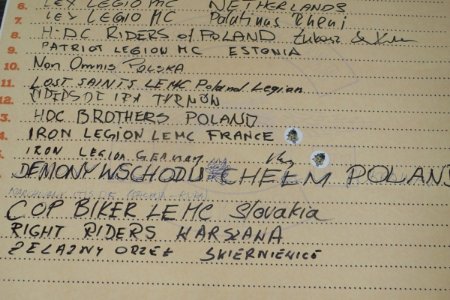 6. LEX LEGIO MC NETHERLANDS
7. LEX LEGIO MC Palatinus Rheni
8. H.D.C RIDERS of POLAND
9. PATRIOT LEGION MC ESTONIA
10. Non Omnis POLSKA
11. LOST SAINTS LEMC Poland Legion
12. RIDERS OF IPA
3. HDC BROTHERS POLAND
4. IRON LEGION LEMC FRANCE
5. IRON LEGION GERMANY
DEMONY WSCHODU CHEŁM POLAND
COP BIKER LEMC Slovakia
RIGHT RIDERS WARSZAWA
ŻELAZNY ORZEŁ SKIERNIEWICE